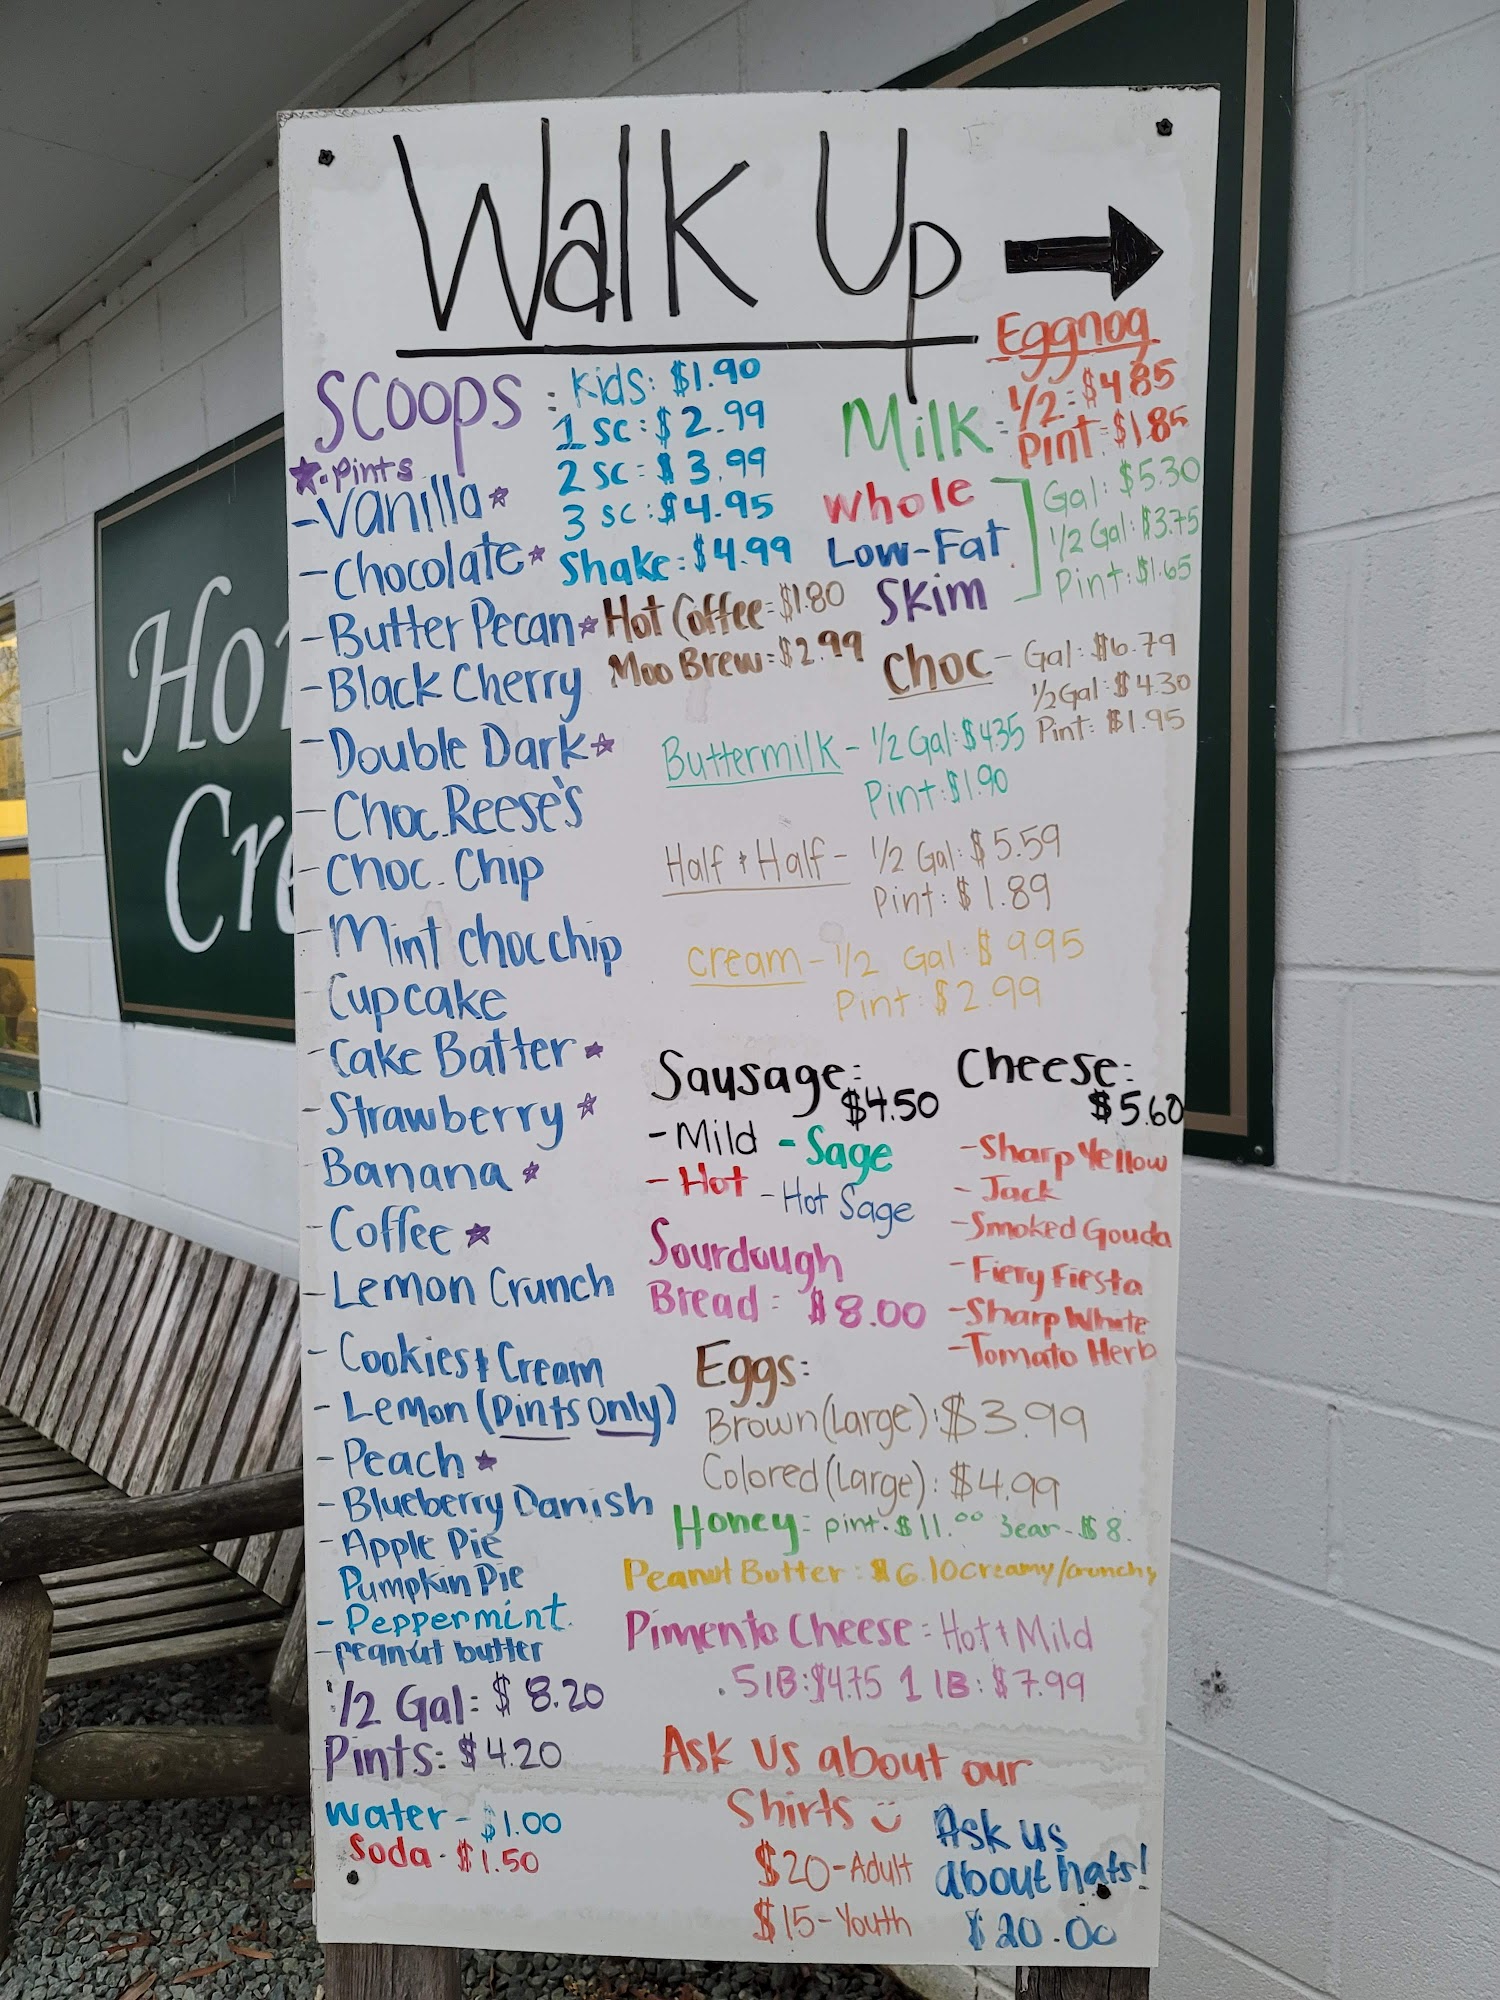 Walk Up
SCOOPS : Kids: $1.90
1 SC: $2.99
2 SC: $3.99
3 SC: $4.95
Shake: $4.99
★-pints
-Vanilla★
-Chocolate★
-Butter Pecan★
-Black Cherry
-Double Dark★
-Choc. Reese's
-Choc. Chip
-Mint choc chip
-Cupcake
-Cake Batter★
-Strawberry★
Banana★
-Coffee★
-Lemon Crunch
-Cookies & Cream
-Lemon (pints only)
-Peach★
-Blueberry Danish
-Apple Pie
Pumpkin Pie
-Peppermint
-peanut butter
1/2 Gal: $8.20
Pints: $4.20
water - $1.00
Soda - $1.50
Hot Coffee = $1.80
Moo Brew = $2.99
Eggnog
1/2 = $4.85
Pint = $1.85
Milk =
Whole
Low-Fat
Skim
Gal: $5.30
1/2 Gal: $3.75
Pint: $1.65
Choc - Gal: $6.79
1/2 Gal: $4.30
Pint: $1.95
Buttermilk - 1/2 Gal: $4.35
Pint: $1.90
Half & Half - 1/2 Gal: $5.59
Pint: $1.89
Cream - 1/2 Gal: $9.95
Pint: $2.99
Sausage:
$4.50
-Mild -Sage
-Hot -Hot Sage
Cheese:
$5.60
-Sharp Yellow
-Jack
-Smoked Gouda
-Fiery Fiesta
-Sharp White
-Tomato Herb
Sourdough
Bread = $8.00
Eggs:
Brown (Large): $3.99
Colored (Large): $4.99
Honey = pint - $11.00 Bear - $8.
Peanut Butter: $6.10 creamy/crunchy
Pimento Cheese = Hot & Mild
.5 lB: $4.75 1 lB: $7.99
Ask us about our
Shirts
$20-Adult
$15-Youth
Ask us
about hats!
$20.00
Ho
Cre